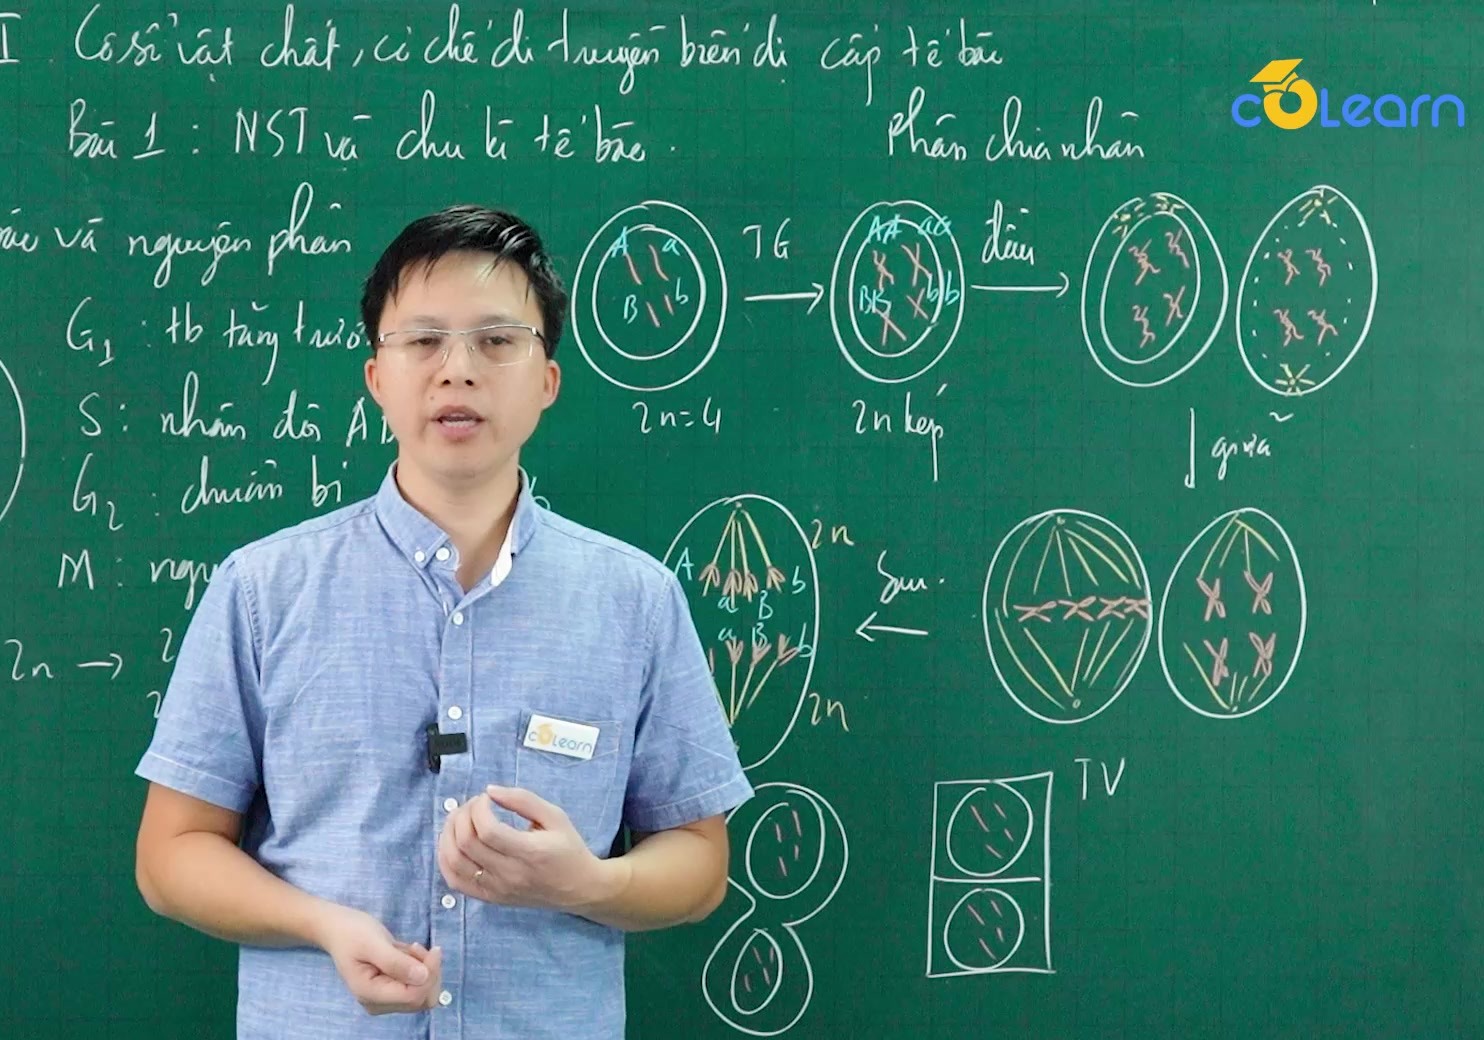 I Cơ sở vật chất, cơ chế di truyền biến dị cấp tế bào
coLearn
Bài 1 : NST và chu kì tế bào.
Phân chia nhân
và nguyên phân
G1 : tb tăng trưở
S : nhân đôi AD
G2 : chuẩn bị
M : ngu
2n → 2
2
A a
B b
2n=4
TG
AA aa
BB bb
2n kép
đầu
giữa
Sau.
2n
A a B b
a B b
2n
coLearn
TV